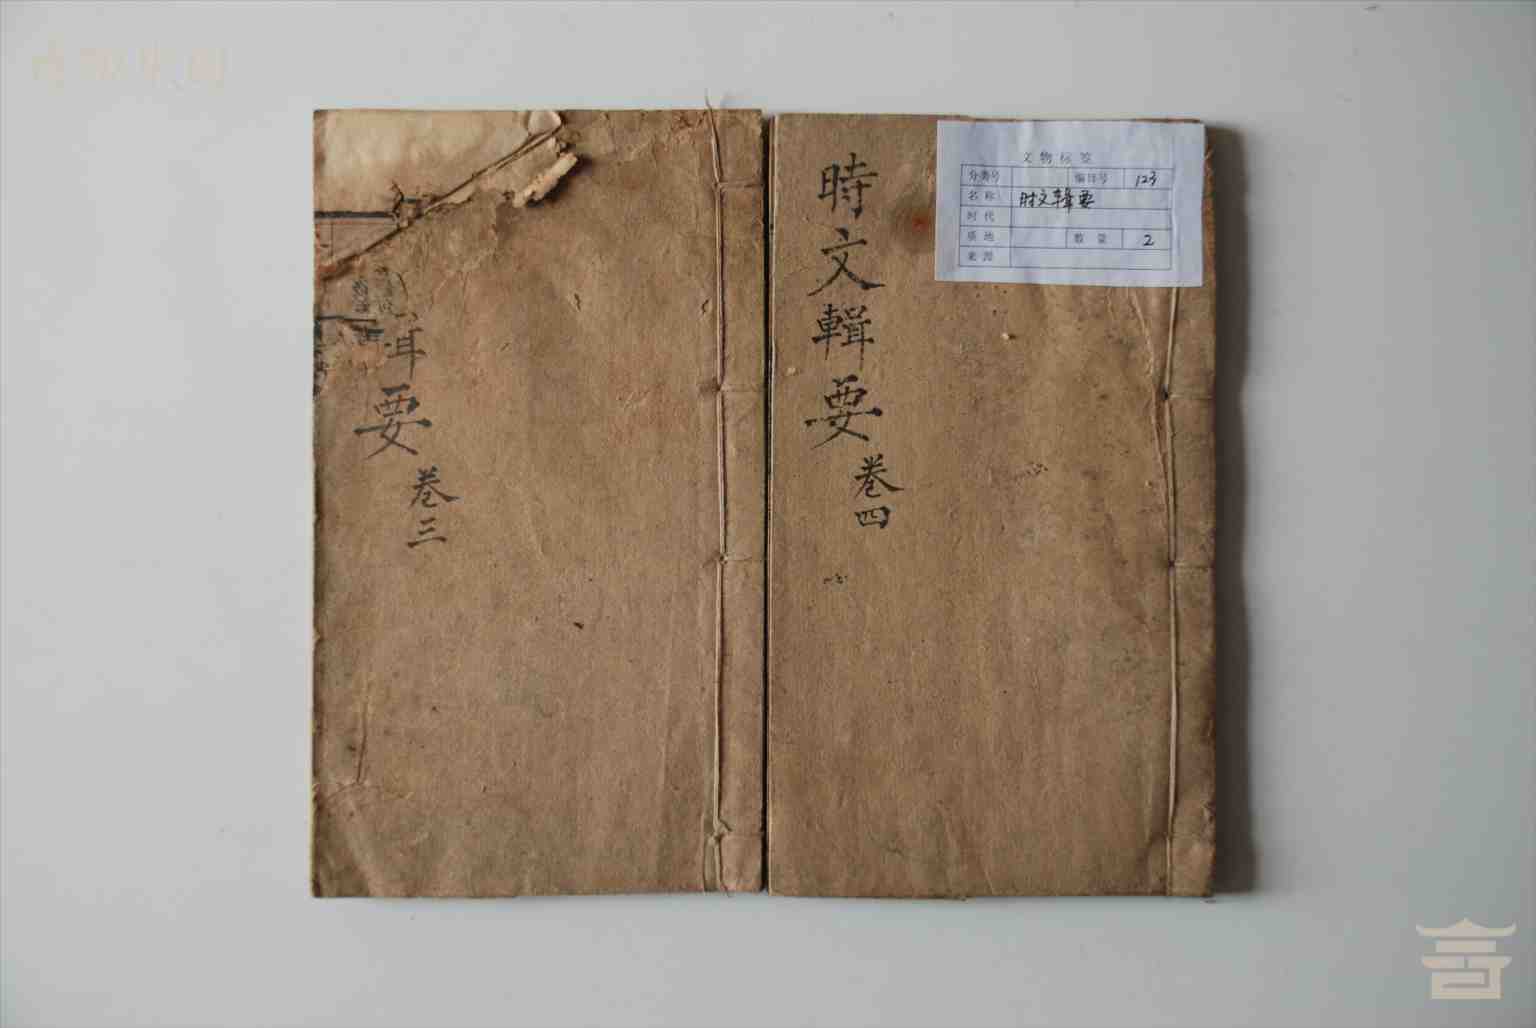 時文輯要
卷四
要
卷三
文物标签
分类号 编目号 123
名称 时文辑要
时代
质地 数量 2
来源